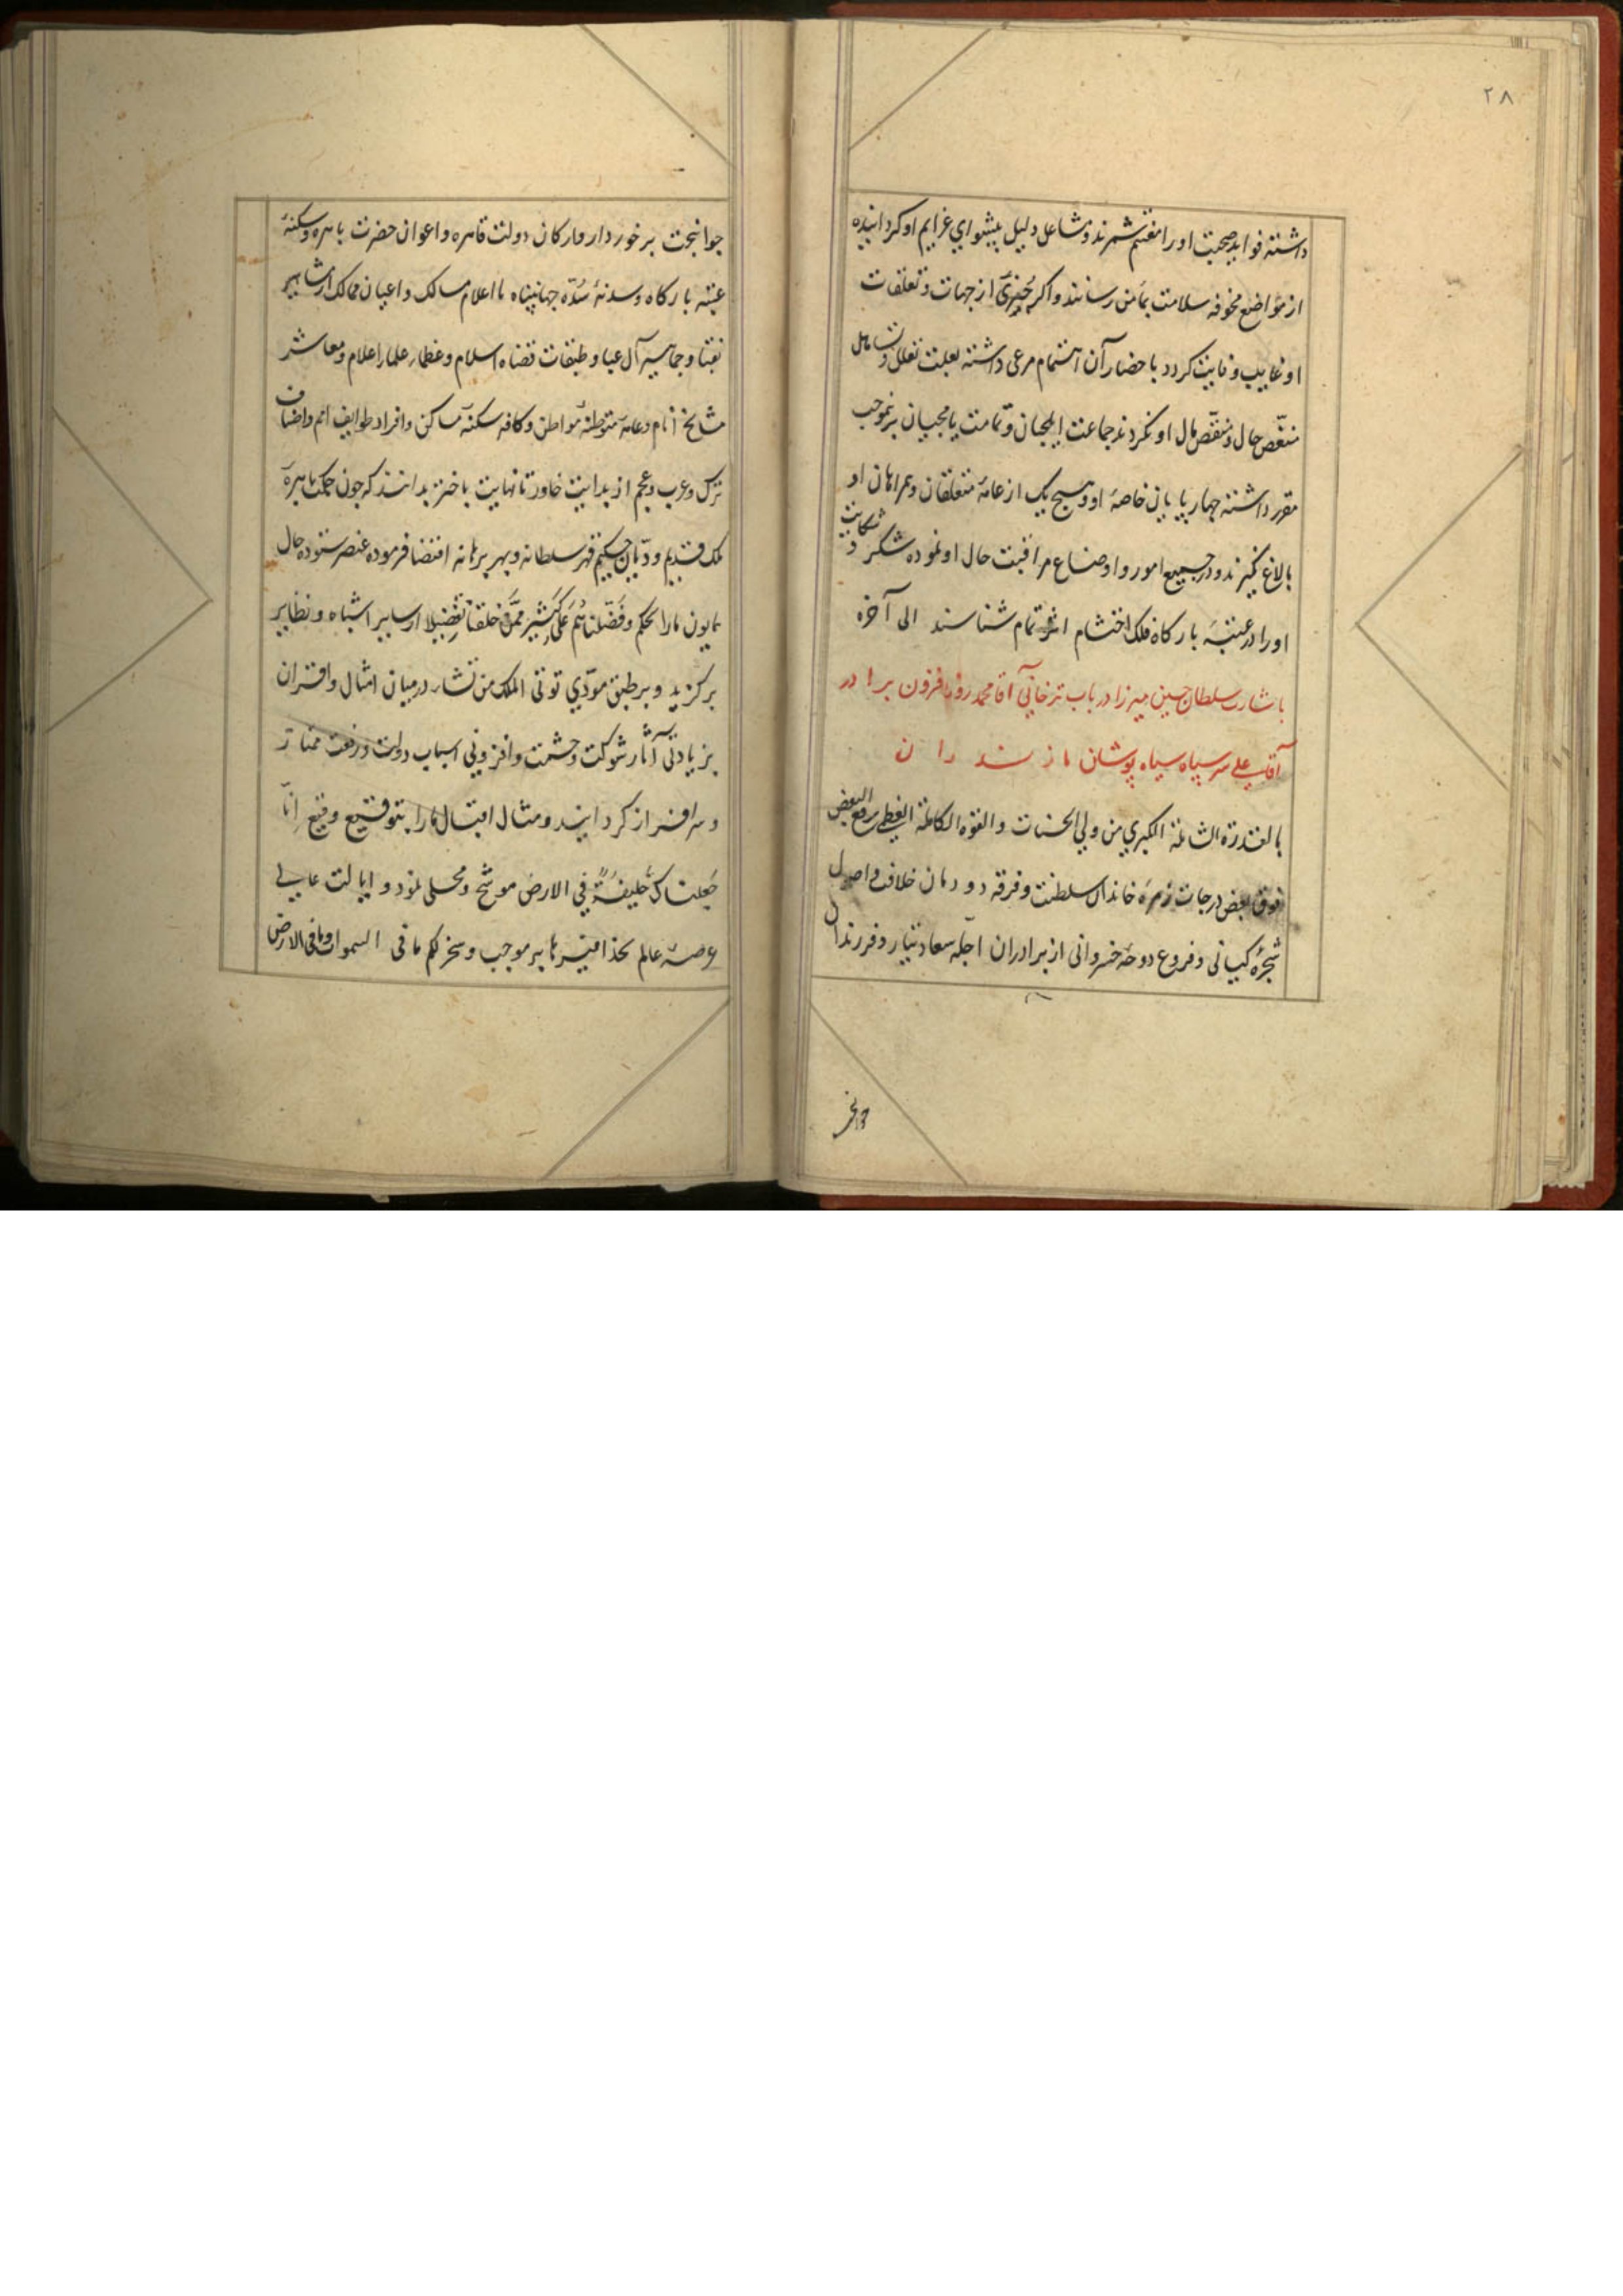 ۲۸
داشته فواید صحبت او را مغتنم شمرند و مشاعل دلیل پیشوای عزایم او کردانیده
از مواضع مخوفه سلامت بمأمن رسانند و اکر چیزی از جهات و تعلقات
او غایب و فایت کردد باحضار آن اهتمام مرعی داشته بعلت تعلل و تساهل
منغّص حال و منقّص مال او نکردند جماعت ایلچیان و تمامت یامچیان برنموجب
مقرر داشته چهارپایان خاصهٔ او و هیچ یک از عامهٔ متعلقان و همراهان او
بالاغ نکیرند و در جمیع امور و اوضاع مراقبت حال او نموده شکر و شکایت
او را در عتبهٔ بارکاه فلک احتشام اثر تمام شناسند الی آخره
باشارت سلطان حسین میرزا در باب ترخانی آقا محمد روزافزون برادر
آقا علی سر سپاه سیاه پوشان مازندران
بالقدرة الشاملة الکبری من ولی الحسنات و القوه الکاملة العظمی رفع البعض
فوق بعض درجات زمرهٔ خاندان سلطنت و فرقه دودمان خلافت و اصول
شجرهٔ کیانی و فروع دوحهٔ خسروانی از برادران اجله سعادتیار و فرزندان
جوانبخت
جوانبخت برخوردار و ارکان دولت قاهره و اعوان حضرت باهره و سکنهٔ
عتبه بارکاه و سدنهٔ سُدّه جهانپناه با اعلام مسالک و اعیان ممالک از مشاهیر
نقبا و جماهیر آل عبا و طبقات قضاه اسلام و عظماء علماء اعلام و معاشر
مشایخ انام و عامه متوطنهٔ مواطن و کافه سکنهٔ مساکن و افراد طوایف امم و اصناف
ترک و عرب و عجم از بدایت خاور تا نهایت باختر بدانند که چون حکمت باهرهٔ
ملک قدیم و دیّان حکیم قهر سلطانه و بهر برهانه اقتضا فرموده عنصر ستوده حال
همایون ما را بحکم و فَضّلناهُم عَلی کَثیر مِمَّن خلقنا تَفضِیلا از سایر اشباه و نظایر
برکزید و بر طبق مودّی توتی الملک من تشاء در میان امثال و اقران
بزیادتی آثار شوکت و حشمت و افزونی اسباب دولت و رفعت ممتاز
و سرافراز کردانید و مثال اقبال ما را بتوقیع وقیع انّا
جَعلناکَ خَلیفَةً فی الارض موشح و محلی نمود و ایالت عالی
عرصهٔ عالم بحذافیرها بر موجب و سخر لکم ما فی السموات و ما فی الارض